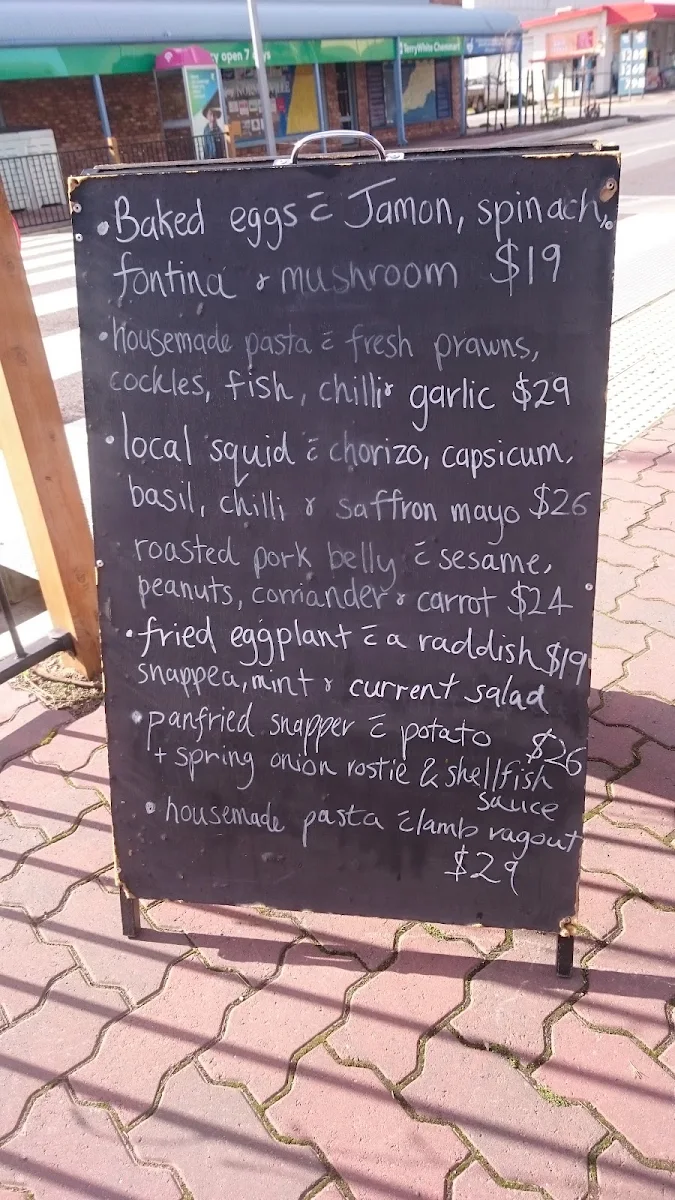 y open 7 days
TerryWhite Chemmart
• Baked eggs c̄ Jamon, spinach,
fontina & mushroom $19
• housemade pasta c̄ fresh prawns,
cockles, fish, chilli & garlic $29
• local squid c̄ chorizo, capsicum,
basil, chilli & saffron mayo $26
roasted pork belly c̄ sesame,
peanuts, corriander & carrot $24
• fried eggplant c̄ a raddish $19
snappea, mint & current salad
• panfried snapper c̄ potato $26
+ spring onion rostie & shellfish
sauce
• housemade pasta c̄ lamb ragout
$29